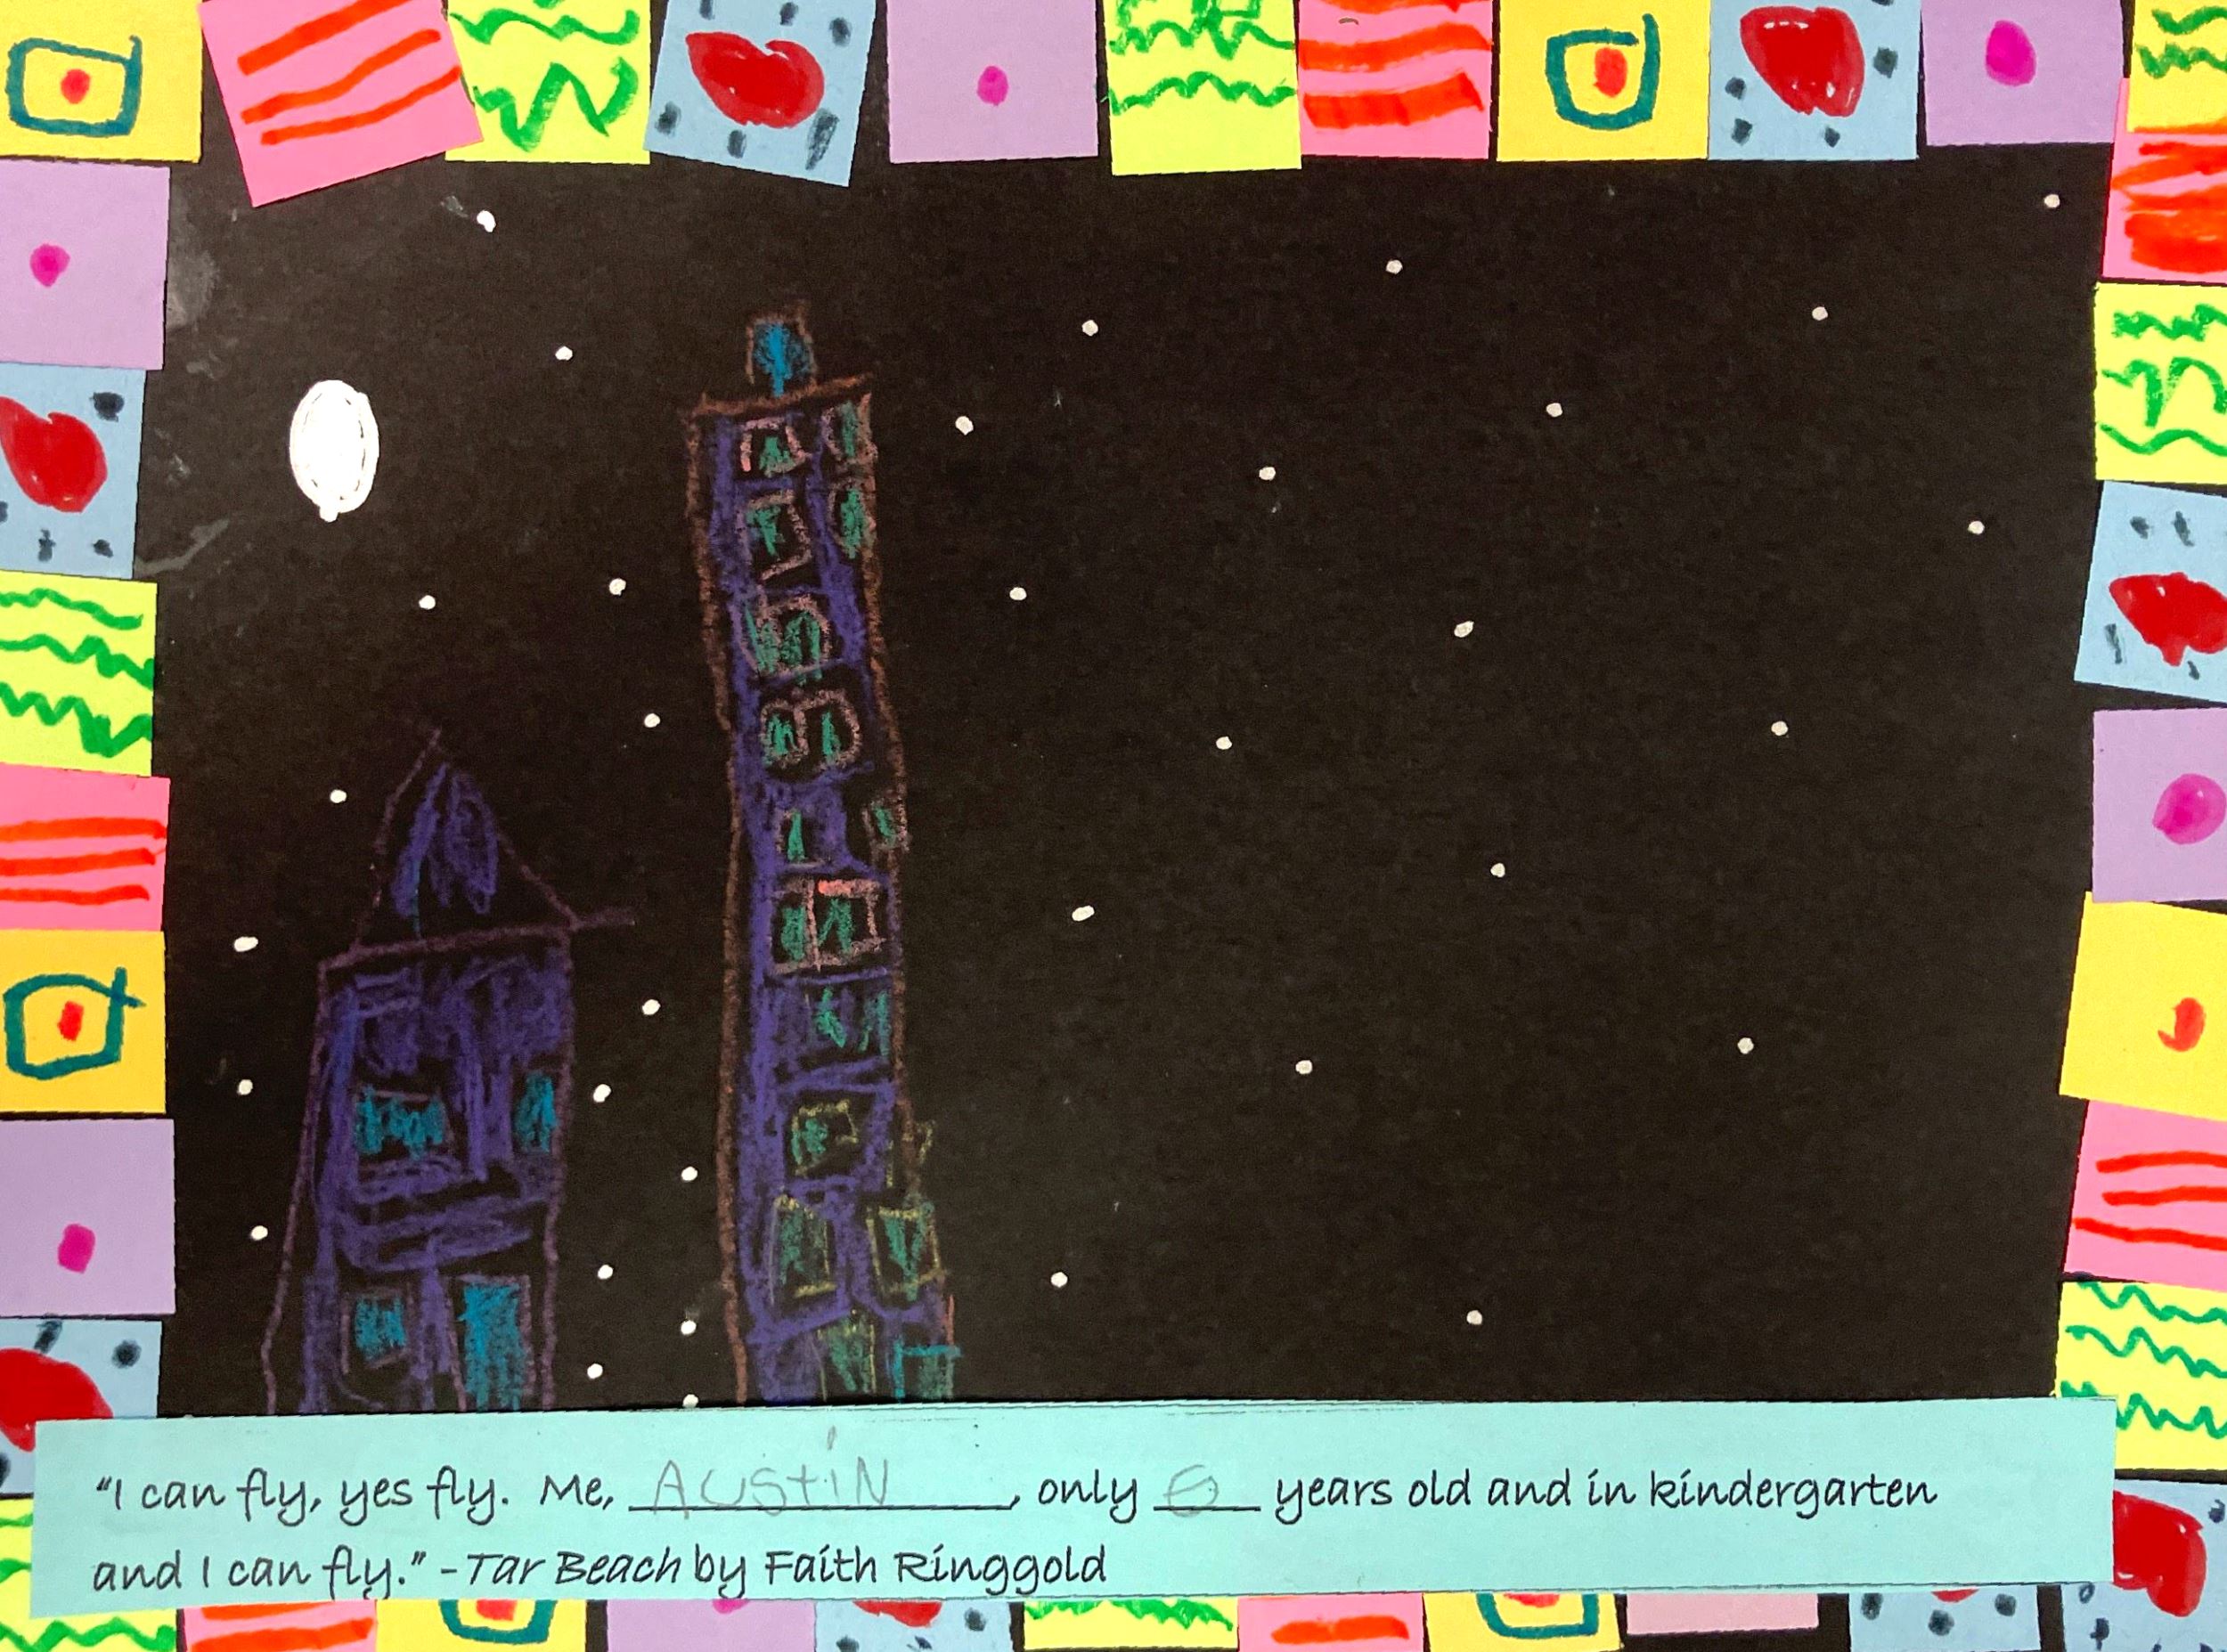 "I can fly, yes fly. Me, AUStiN, only 6 years old and in kindergarten
and I can fly." -Tar Beach by Faith Ringgold